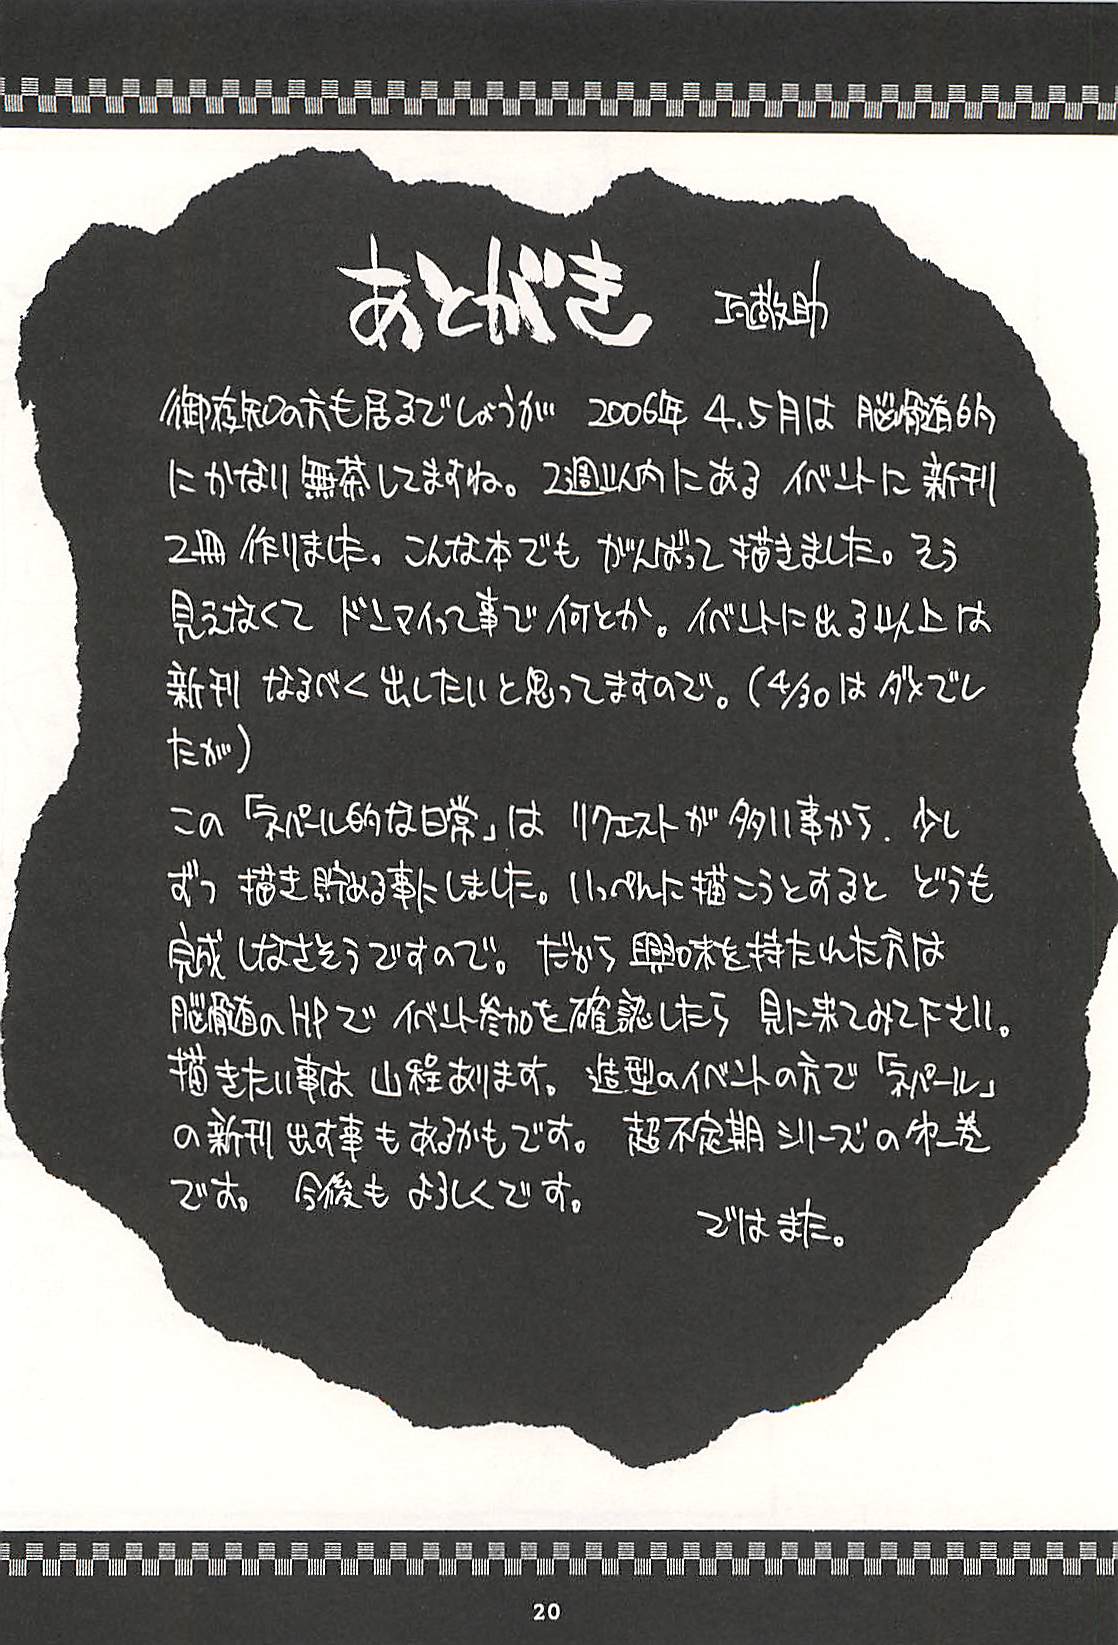 あとがき 敬助
御存知の方も居るでしょうが 2006年 4.5月は 脳髄的
にかなり無茶してますね。2週以内にある イベントに 新刊
2冊 作りました。こんな本でも がんばって描きました。そう
見えなくて ドンマイって事で 何とか。イベントに出る以上は
新刊 なるべく 出したいと思ってますので。(4/30はダメでし
たが)
この「ネパール的な日常」は リクエストが多い事から、少し
ずつ 描き貯める事にしました。いっぺんに描こうとすると どうも
完成しなさそうですので。だから 興味を持たれた方は
脳髄のHPで イベント参加を確認したら 見に来てみて下さい。
描きたい事は 山程あります。 造型のイベントの方で「ネパール」
の新刊 出す事もあるかもです。 超不定期シリーズの第一巻
です。 今後も よろしくです。
ではまた。
20